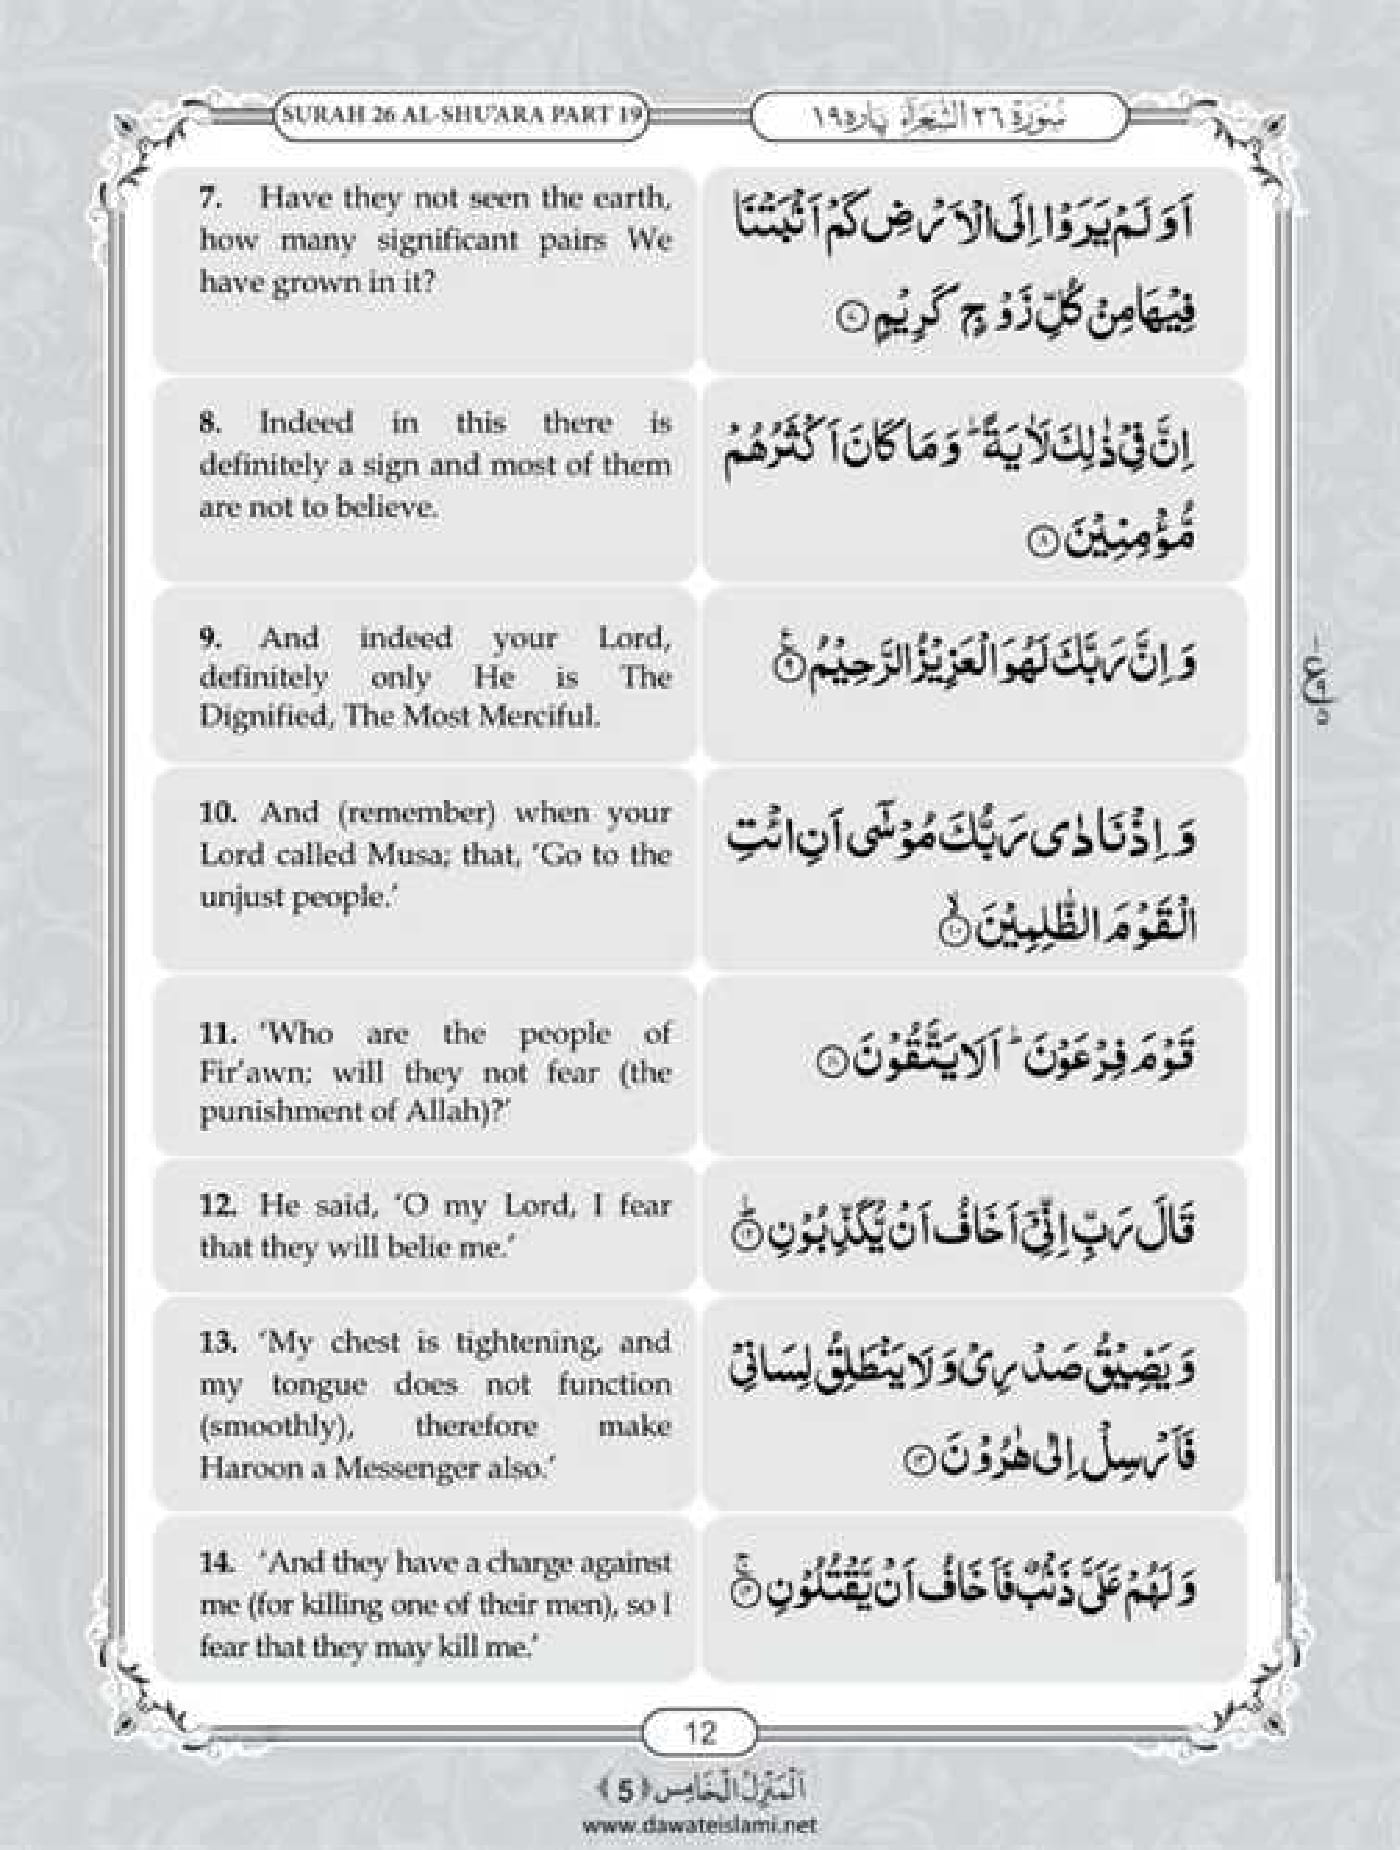 SURAH 26 AL-SHU'ARA PART 19
سُوۡرَةُ ٢٦ الشُّعَرَآء پارہ ١٩
7. Have they not seen the earth,
how many significant pairs We
have grown in it?
اَوَ لَمْ یَرَوْا اِلَى الْاَرْضِ كَمْ اَنْۢبَتْنَا
فِیْهَا مِنْ كُلِّ زَوْجٍ كَرِیْمٍ ﴿۷﴾
8. Indeed in this there is
definitely a sign and most of them
are not to believe.
اِنَّ فِیْ ذٰلِكَ لَاٰیَةً ؕ وَ مَا كَانَ اَكْثَرُهُمْ
مُّؤْمِنِیْنَ ﴿۸﴾
9. And indeed your Lord,
definitely only He is The
Dignified, The Most Merciful.
وَ اِنَّ رَبَّكَ لَهُوَ الْعَزِیْزُ الرَّحِیْمُ ﴿۹﴾
10. And (remember) when your
Lord called Musa; that, ‘Go to the
unjust people.’
وَ اِذْ نَادٰى رَبُّكَ مُوْسٰۤى اَنِ ائْتِ
الْقَوْمَ الظّٰلِمِیْنَ ﴿۱۰﴾
11. ‘Who are the people of
Fir’awn; will they not fear (the
punishment of Allah)?’
قَوْمَ فِرْعَوْنَ ؕ اَلَا یَتَّقُوْنَ ﴿۱۱﴾
12. He said, ‘O my Lord, I fear
that they will belie me.’
قَالَ رَبِّ اِنِّیْۤ اَخَافُ اَنْ یُّكَذِّبُوْنِ ﴿۱۲﴾
13. ‘My chest is tightening, and
my tongue does not function
(smoothly), therefore make
Haroon a Messenger also.’
وَ یَضِیْقُ صَدْرِیْ وَ لَا یَنْطَلِقُ لِسَانِیْ
فَاَرْسِلْ اِلٰى هٰرُوْنَ ﴿۱۳﴾
14. ‘And they have a charge against
me (for killing one of their men), so I
fear that they may kill me.’
وَ لَهُمْ عَلَیَّ ذَنْۢبٌ فَاَخَافُ اَنْ یَّقْتُلُوْنِ ﴿۱۴﴾
12
اَلْمَنْزِلُ الْخَامِس ﴿5﴾
www.dawateislami.net